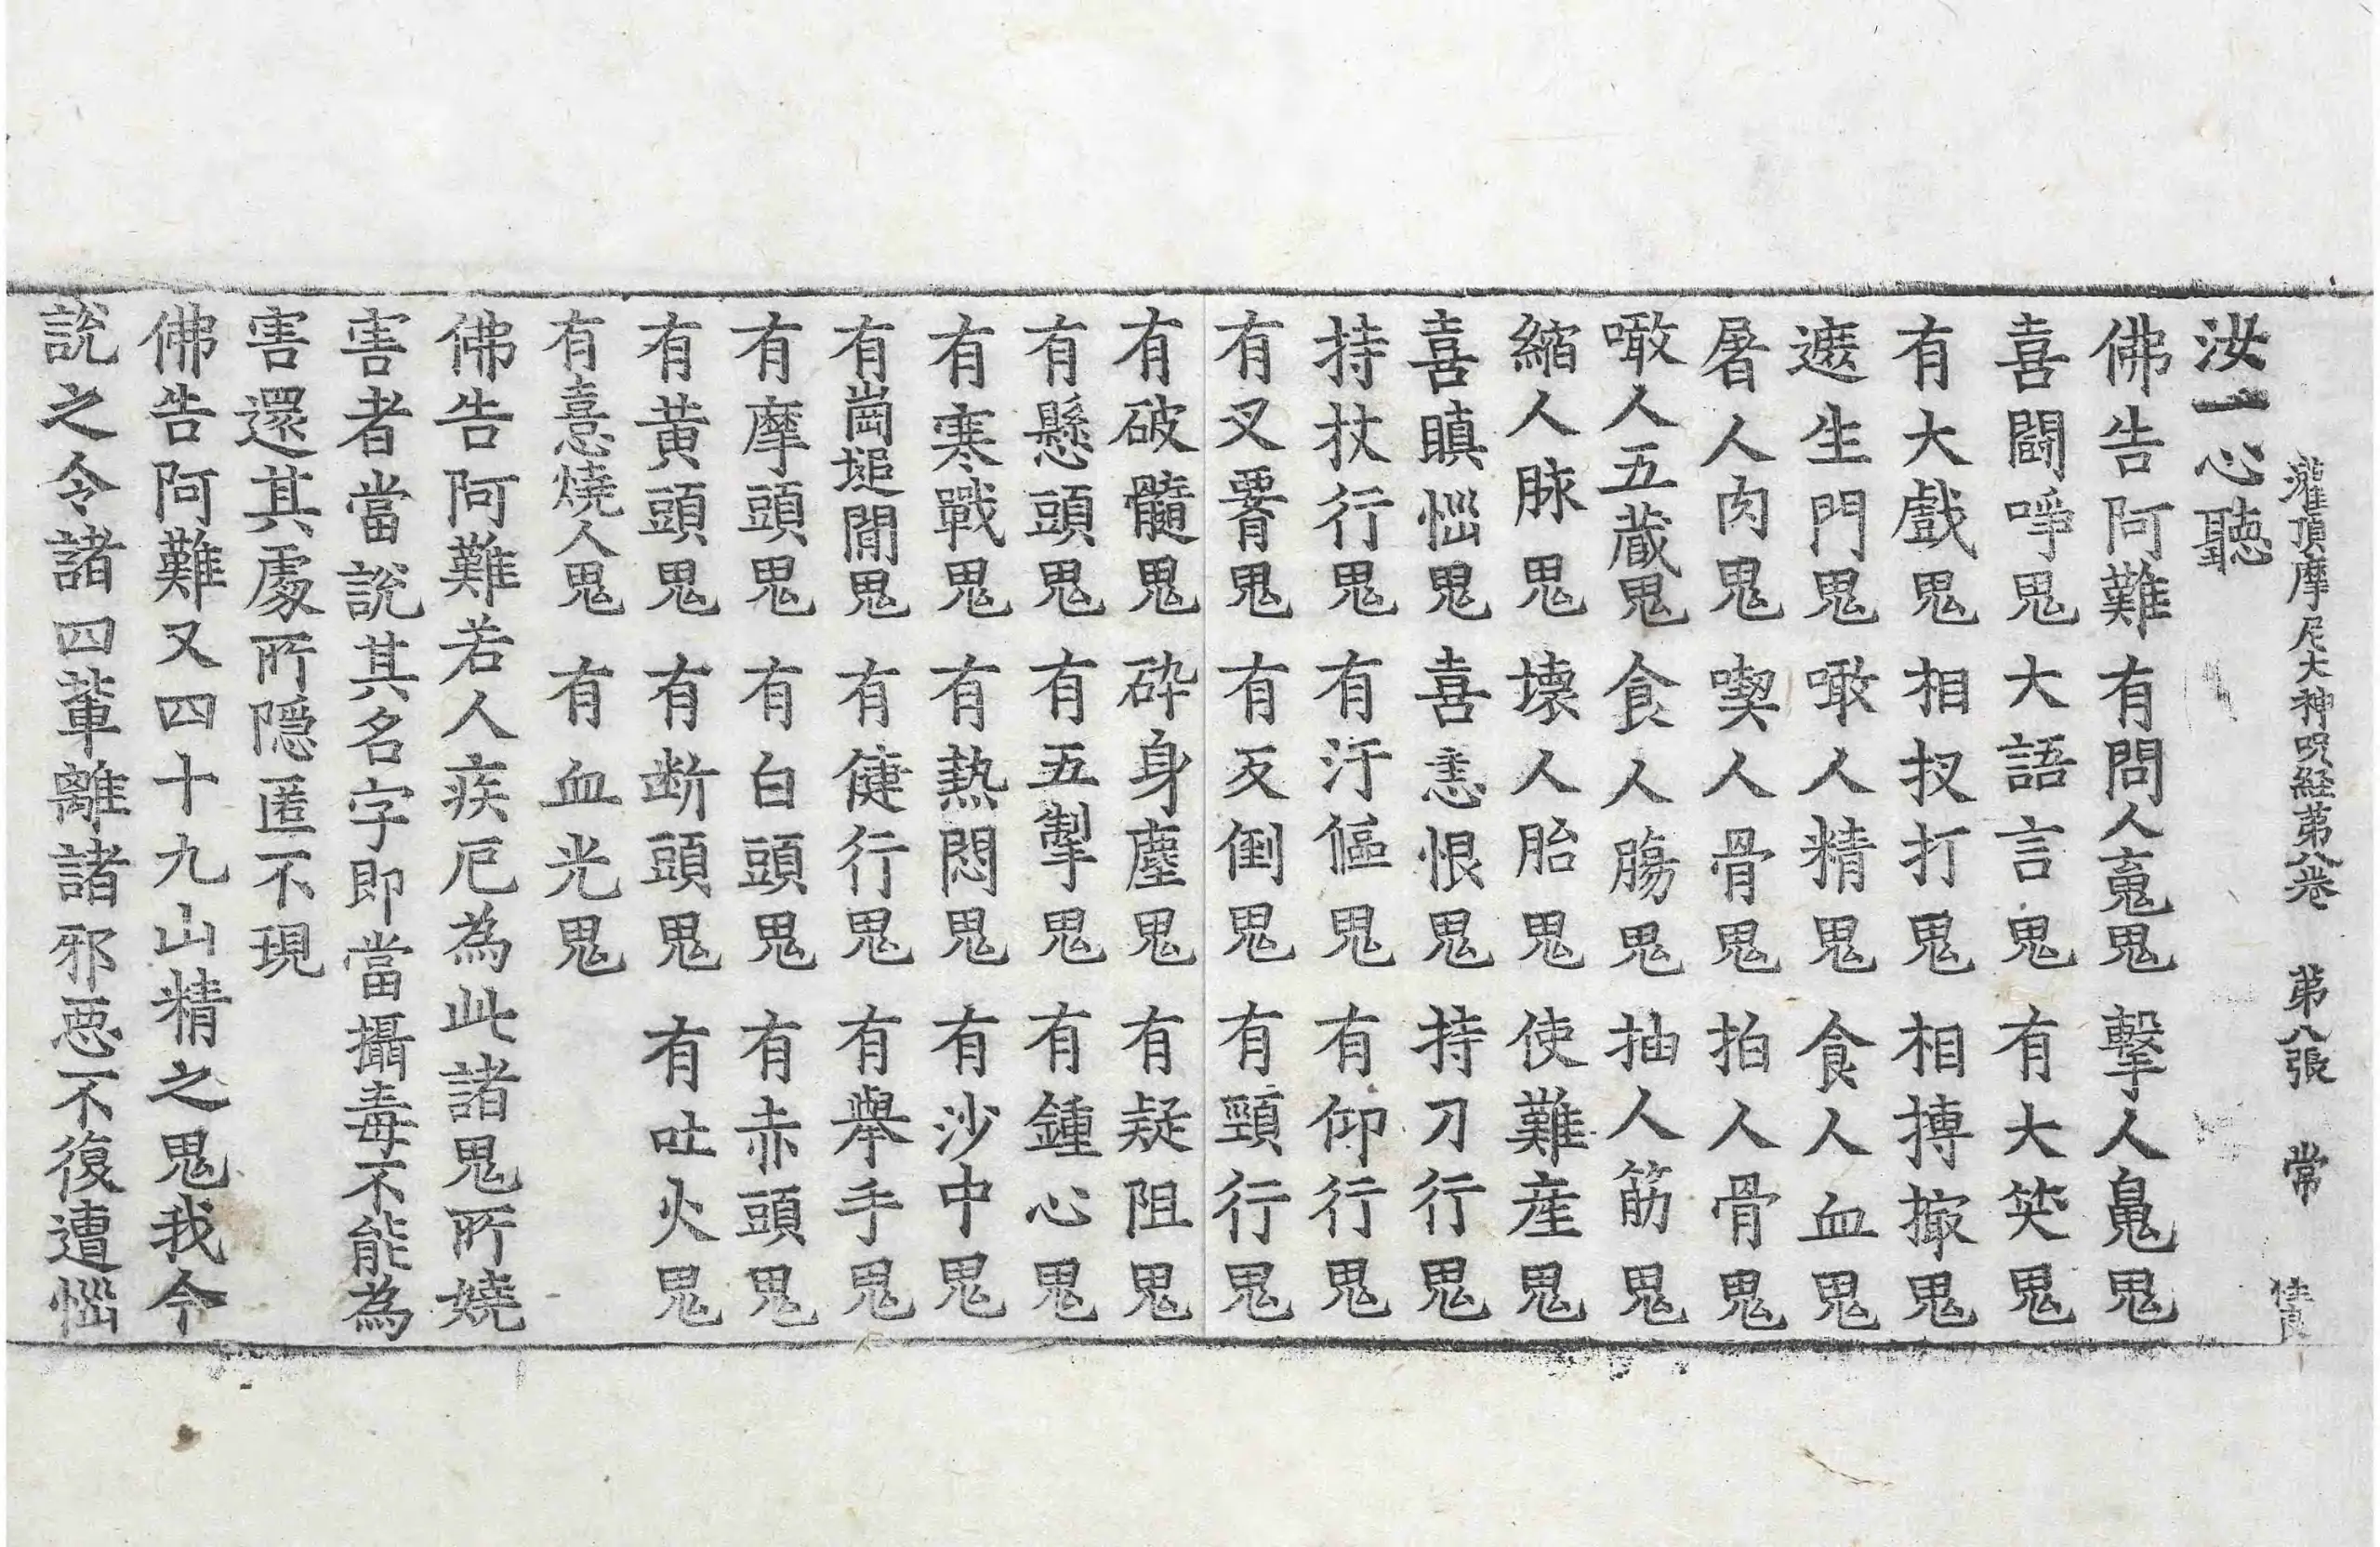 灌頂摩尼大神呪経第八卷 第八張 常
汝一心聽
佛告阿難 有問人𡨋鬼 擊人鼻鬼
喜鬪諍鬼 大語言鬼 有大笑鬼
有大戲鬼 相扠打鬼 相摶撮鬼
遮生門鬼 噉人精鬼 食人血鬼
屠人肉鬼 喫人骨鬼 拍人骨鬼
噉人五藏鬼 食人膓鬼 抽人筋鬼
縮人脉鬼 壞人胎鬼 使難産鬼
喜瞋惱鬼 喜恚恨鬼 持刀行鬼
持杖行鬼 有汙傴鬼 有仰行鬼
有叉鬼 有反倒鬼 有頸行鬼
有破髓鬼 碎身塵鬼 有疑阻鬼
有懸頭鬼 有五掣鬼 有鍾心鬼
有寒戰鬼 有熱悶鬼 有沙中鬼
有崗塠間鬼 有健行鬼 有舉手鬼
有摩頭鬼 有白頭鬼 有赤頭鬼
有黄頭鬼 有断頭鬼 有吐火鬼
有憙燒人鬼 有血光鬼
佛告阿難若人疾厄為此諸鬼所嬈
害者當說其名字即當攝毒不能為
害還其處所隱匿不現
佛告阿難又四十九山精之鬼我今
說之令諸四輩離諸邪惡不復遭惱